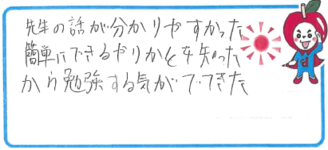 先生の話が分かりやすかった
簡単にできるやりかとを知った
から勉強する気がでてきた